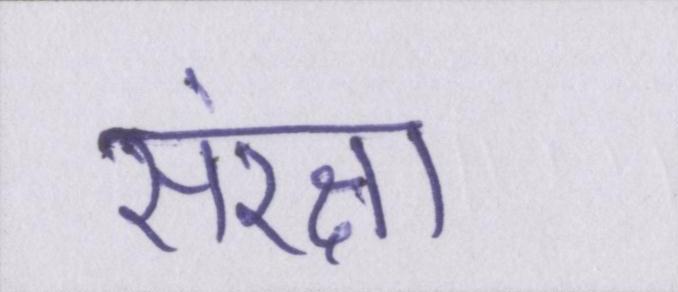 संरक्षा